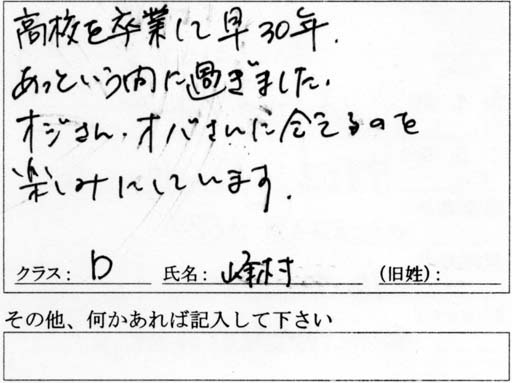 高校を卒業して早30年.
あっという内に過ぎました.
オジさん.オバさんに会えるのを
楽しみにしています.
クラス: D 氏名: 峰村 (旧姓):
その他、何かあれば記入して下さい